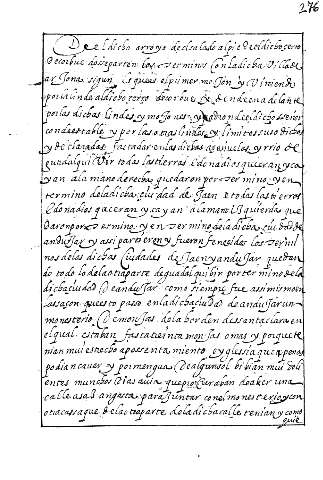 276
De el dicho arroyo de el salado al pie de el dicho cerro
de los terminos con la dicha Villa de
Arjona segun el primer mojon y Viniendo
por el dicho cerro de en adelante
por las dichas lindes y mojones y donde el dicho señor
condestable y por las otras lindes y limites suso dichas
y declarados fasta dar en las dichas açeñuelas y rrio de
guadalquiVir todas las tierras e donadios que eran y ca
yan a la mano derecha quedaron por termino y en
termino de la dicha çiudad de Jaen e todas las tierras
e donadios que eran y cayan a la mano yzquierda que
daron por termino y en termino de la dicha çiudad de
andujar y assi partieron y fueron fenesidos los termi
nos de las dichas ciudades de Jaen y andujar quedan
do todo lo de la otra parte de guadalquibir por termino de la
dicha ciudad de andujar como siempre fue assi mismo en
la sason questo paso en la dicha ciudad de andujar un
monesterio de monjas de la horden de santa clara en
el qual estaban fasta treinta monjas o mas y porque te
nian mui estrecho aposentamiento e yglesia que apenas
podian caver y por mengua de algun sol bibian mui doli
entes munchos dias auia que procuraban de aber una
calle asas angosta para juntar con el monesterio y con
otra casa que de la otra parte de la dicha calle tenian y como
quie